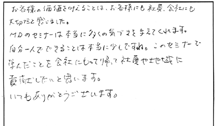 お客様の価値をりかえることは、お客様にも社員、会社にも
大切だと感じました。
MDのセミナーは本当に多くの気づきを与えてくれます。
自分一人でできることは本当に少しですね。このセミナーで
学んだことを会社にもって帰って社員やお客様に
貢献したいと思います。
いつもありがとうございます。